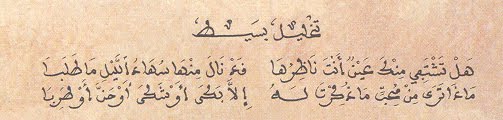 تخليل بسيط
هَلْ تَشْتَفِي مِنْكَ عَيْنٌ أَنْتَ نَاظِرُهَا قَدْ نَالَ مِنْهَا سُهَادُ اللَّيْلِ مَا طَلَبَا
مَاذَا تَرَى مِنْ مُحِبٍّ مَا ذُكِرْتَ لَهُ إِلَّا بَكَى أَوْ شَكَى أَوْ حَنَّ أَوْ طَرِبَا